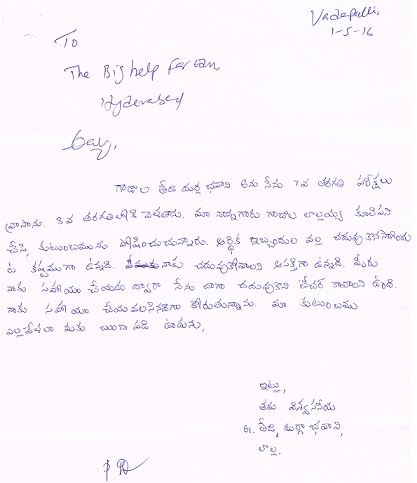 Vadapalli,
1-5-16
To
The Big help for an,
Hyderabad
గాజుల శ్రీదేవి దుర్గ భవాని అను నేను 7వ తరగతి పరీక్షలు
వ్రాసాను. 8వ తరగతిలోకి వెళతాను. మా నాన్నగారు గాజుల లాల్లయ్య కూలిపని
చేసి కుటుంబమును పోషించుచున్నారు. ఆర్థిక ఇబ్బందుల వల్ల చదువుకొనసాగించు
ట కష్టముగా ఉన్నది. నాకు చదువుకోవాలని ఆసక్తిగా ఉన్నది. మీరు
నాకు సహాయం చేయడం ద్వారా నేను బాగా చదువుకొని టీచర్ కావాలని ఉంది.
నాకు సహాయం చేయవలసినదిగా కోరుతున్నాను. మా కుటుంబము
ఎల్లవేళలా మీకు ఋణ పడి ఉండును,
ఇట్లు,
తమ విశ్వసనీయ
దుర్గా భవాని,